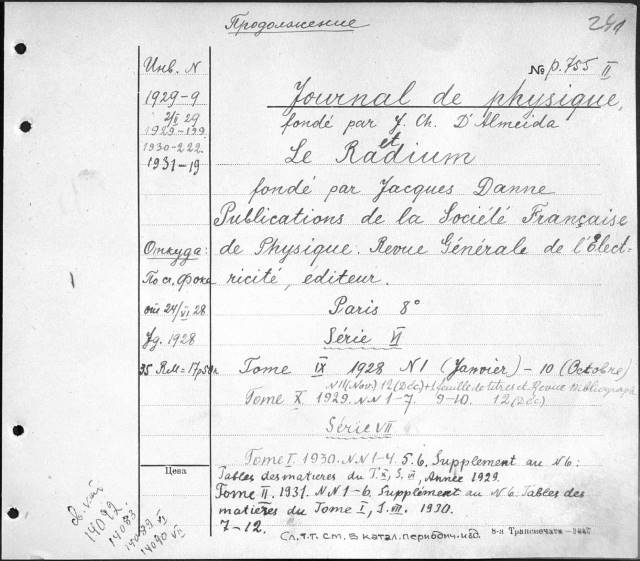 Продолжение
241
№ p.755 II
Инв. N
1929-9
2/I 29
1929-199
1930-222
1931-19
Откуда:
По сч. Фока
от 24/VI 28
1928
35 RM = 17р50к
Цена
14082
14083
14089 VI
14090 VII
Journal de physique,
fondé par J. Ch. D'Almeida
et
Le Radium
fondé par Jacques Danne
Publications de la Société Française
de Physique. Revue Générale de l'Élect-
ricité, éditeur.
Paris 8°
Série VI
Tome IX 1928 N1 (Janvier) - 10 (Octobre)
N11 (Nov) 12 (Déc) + 1 feuille de titres et Revue Bibliograph
Tome X 1929. NN 1-7. 9-10. 12 (Déc)
Série VII
Tome I. 1930. NN 1-4. 5. 6. Supplement au N6:
Tables des matieres du T. X, S. VI, Année 1929.
Tome II. 1931. NN 1-6. Supplément au N6. Tables des
matières du Tome I, S. VII. 1930.
7-12.
Сл. т.т. см. в катал. периодич. изд.
8-я Транспечать